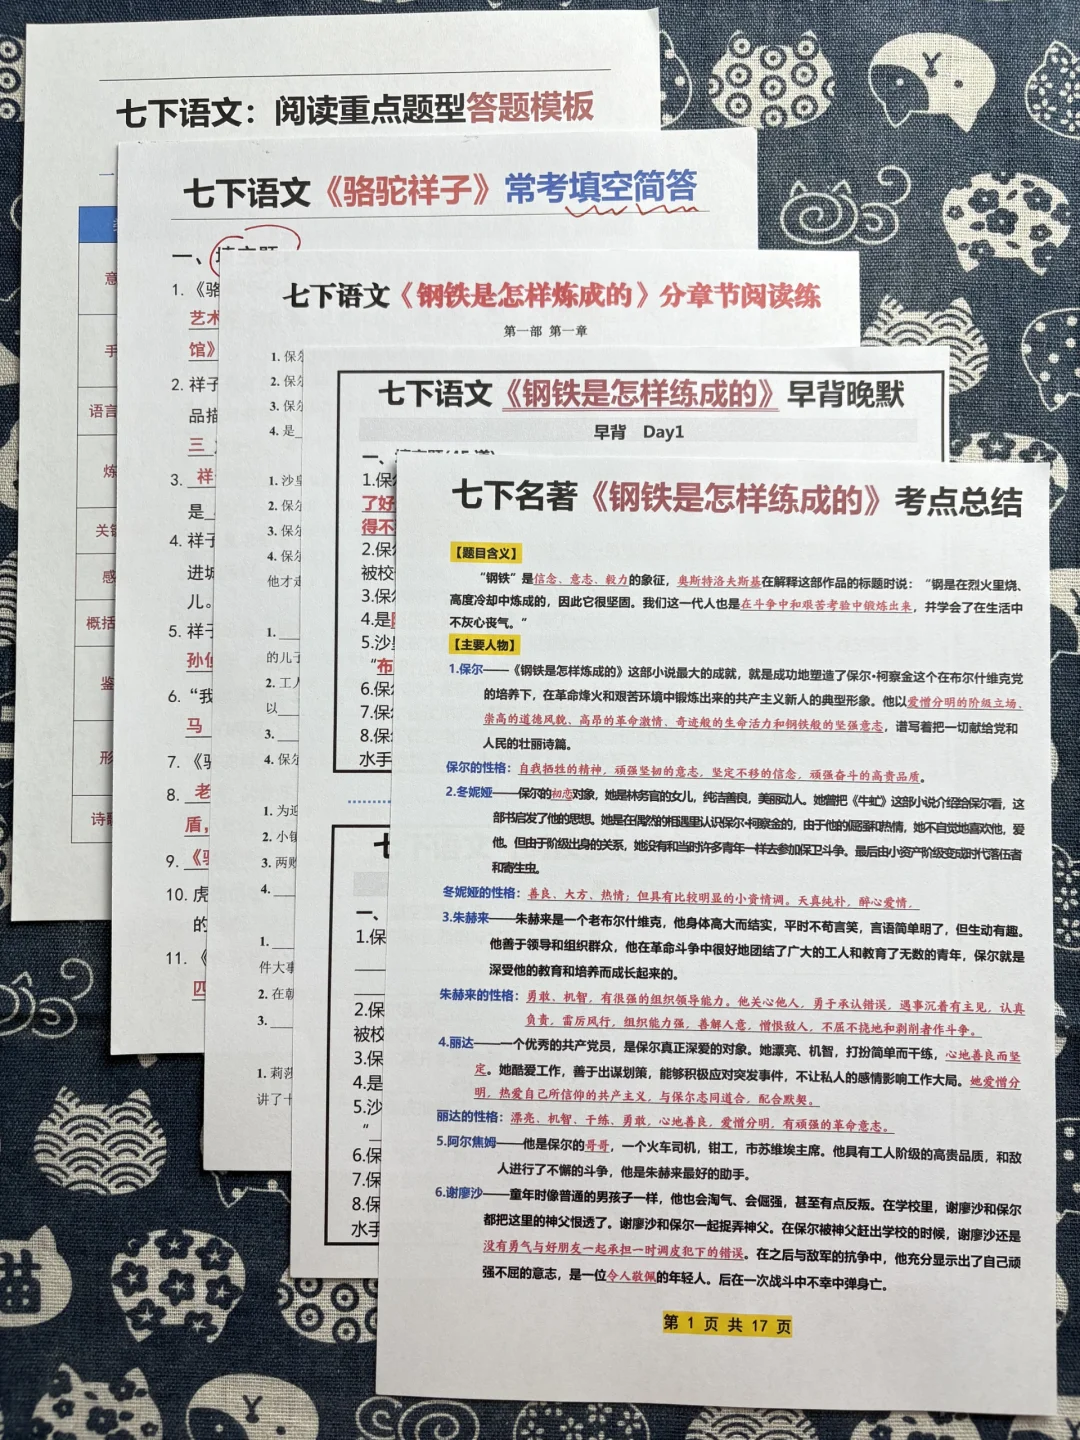 七下语文：阅读重点题型答题模板
一
意
手
语言
炼
关键
感
概括
鉴
形
诗
七下语文《骆驼祥子》常考填空简答
一、填空题
1.《骆
艺术
馆》
2. 祥子
品描
三
3. 祥
是
4. 祥子
进城
儿。
5. 祥子
孙侦
6. “我
马
7.《骆
8. 老
盾，
9.《骆
10. 虎
的
11.《
四
七下语文《钢铁是怎样炼成的》分章节阅读练
第一部 第一章
1. 保尔
2. 保尔
3. 保尔
4. 是
1. 沙皇
2. 保尔
3. 保尔
4. 保尔
他才走
1.
的儿子
2. 工人
以
3.
4. 保尔
1. 为迎
2. 小镇
3. 两败
4.
1.
件大事
2. 在朝
3.
1. 莉莎
讲了十
七下语文《钢铁是怎样练成的》早背晚默
早背 Day1
一、填空题(15道)
1.保尔
了好
得不
2.保尔
被校
3.保尔
4.是
5.沙皇
“布
6.保尔
7.保尔
8.保尔
水手
七
一、
1.保
2.保
被校
3.保
4.是
5.沙
“
6.保
7.保
8.保
水手
七下名著《钢铁是怎样练成的》考点总结
【题目含义】
“钢铁”是信念、意志、毅力的象征，奥斯特洛夫斯基在解释这部作品的标题时说：“钢是在烈火里烧、
高度冷却中炼成的，因此它很坚固。我们这一代人也是在斗争中和艰苦考验中锻炼出来，并学会了在生活中
不灰心丧气。”
【主要人物】
1.保尔——《钢铁是怎样炼成的》这部小说最大的成就，就是成功地塑造了保尔·柯察金这个在布尔什维克党
的培养下，在革命烽火和艰苦环境中锻炼出来的共产主义新人的典型形象。他以爱憎分明的阶级立场、
崇高的道德风貌、高昂的革命激情、奇迹般的生命活力和钢铁般的坚强意志，谱写着把一切献给党和
人民的壮丽诗篇。
保尔的性格：自我牺牲的精神，顽强坚韧的意志，坚定不移的信念，顽强奋斗的高贵品质。
2.冬妮娅——保尔的初恋对象，她是林务官的女儿，纯洁善良，美丽动人。她曾把《牛虻》这部小说介绍给保尔看，这
部书启发了他的思想。她是在偶然的相遇里认识保尔·柯察金的，由于他的倔强和热情，她不自觉地喜欢他，爱
他。但由于阶级出身的关系，她没有和当时许多青年一样去参加保卫斗争。最后由小资产阶级变成时代落伍者
和寄生虫。
冬妮娅的性格：善良、大方、热情；但具有比较明显的小资情调。天真纯朴，醉心爱情。
3.朱赫来——朱赫来是一个老布尔什维克，他身体高大而结实，平时不苟言笑，言语简单明了，但生动有趣。
他善于领导和组织群众，他在革命斗争中很好地团结了广大的工人和教育了无数的青年，保尔就是
深受他的教育和培养而成长起来的。
朱赫来的性格：勇敢、机智，有很强的组织领导能力。他关心他人，勇于承认错误，遇事沉着有主见，认真
负责，雷厉风行，组织能力强，善解人意，憎恨敌人，不屈不挠地和剥削者作斗争。
4.丽达——一个优秀的共产党员，是保尔真正深爱的对象。她漂亮、机智，打扮简单而干练，心地善良而坚
定。她酷爱工作，善于出谋划策，能够积极应对突发事件，不让私人的感情影响工作大局。她爱憎分
明，热爱自己所信仰的共产主义，与保尔志同道合，配合默契。
丽达的性格：漂亮、机智、干练、勇敢，心地善良，爱憎分明，有顽强的革命意志。
5.阿尔焦姆——他是保尔的哥哥，一个火车司机，钳工，市苏维埃主席。他具有工人阶级的高贵品质，和敌
人进行了不懈的斗争，他是朱赫来最好的助手。
6.谢廖沙——童年时像普通的男孩子一样，他也会淘气、会倔强，甚至有点反叛。在学校里，谢廖沙和保尔
都把这里的神父恨透了。谢廖沙和保尔一起捉弄神父。在保尔被神父赶出学校的时候，谢廖沙还是
没有勇气与好朋友一起承担一时调皮犯下的错误。在之后与敌军的抗争中，他充分显示出了自己顽
强不屈的意志，是一位令人敬佩的年轻人。后在一次战斗中不幸中弹身亡。
第 1 页 共 17 页